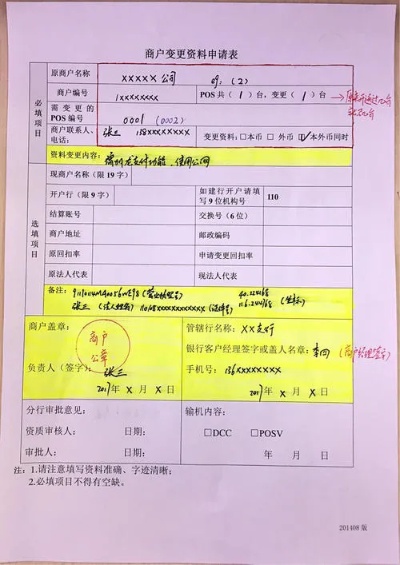 商户变更资料申请表
必填项目
原商户名称 XXXXX公司 例：(2)
商户编号 1xxxxxxxx POS共（1）台，变更（1）台
需变更的POS编号 0001 (0002)
商户联系人、电话: 张三 138xxxxxxxx 变更资料: □本币 □外币 ☑本外币同时
资料变更内容: 使用公网
选填项目
现商户名称（限19字）
开户行（限9字） 如建行开户请填写9位机构号 110
结算账号 交换号（6位）
商户地址 邮政编码
原回扣率 申请变更回扣率
原法人代表 现法人代表
备注:
张三
商户盖章: 管辖行名称: XX支行
商户公章
银行客户经理签字或盖人名章: 李四
负责人（签字）: 张三 手机号: 136xxxxxxxx
2017年 X 月 X 日 2017年 X 月 X 日
分行审批意见: 输机内容:
资质审核人: 日期: □DCC □POSV
审批人: 日期: 年 月 日
注: 1.请注意填写资料准确、字迹清晰;
2.必填项目不得有空缺。
201408 版